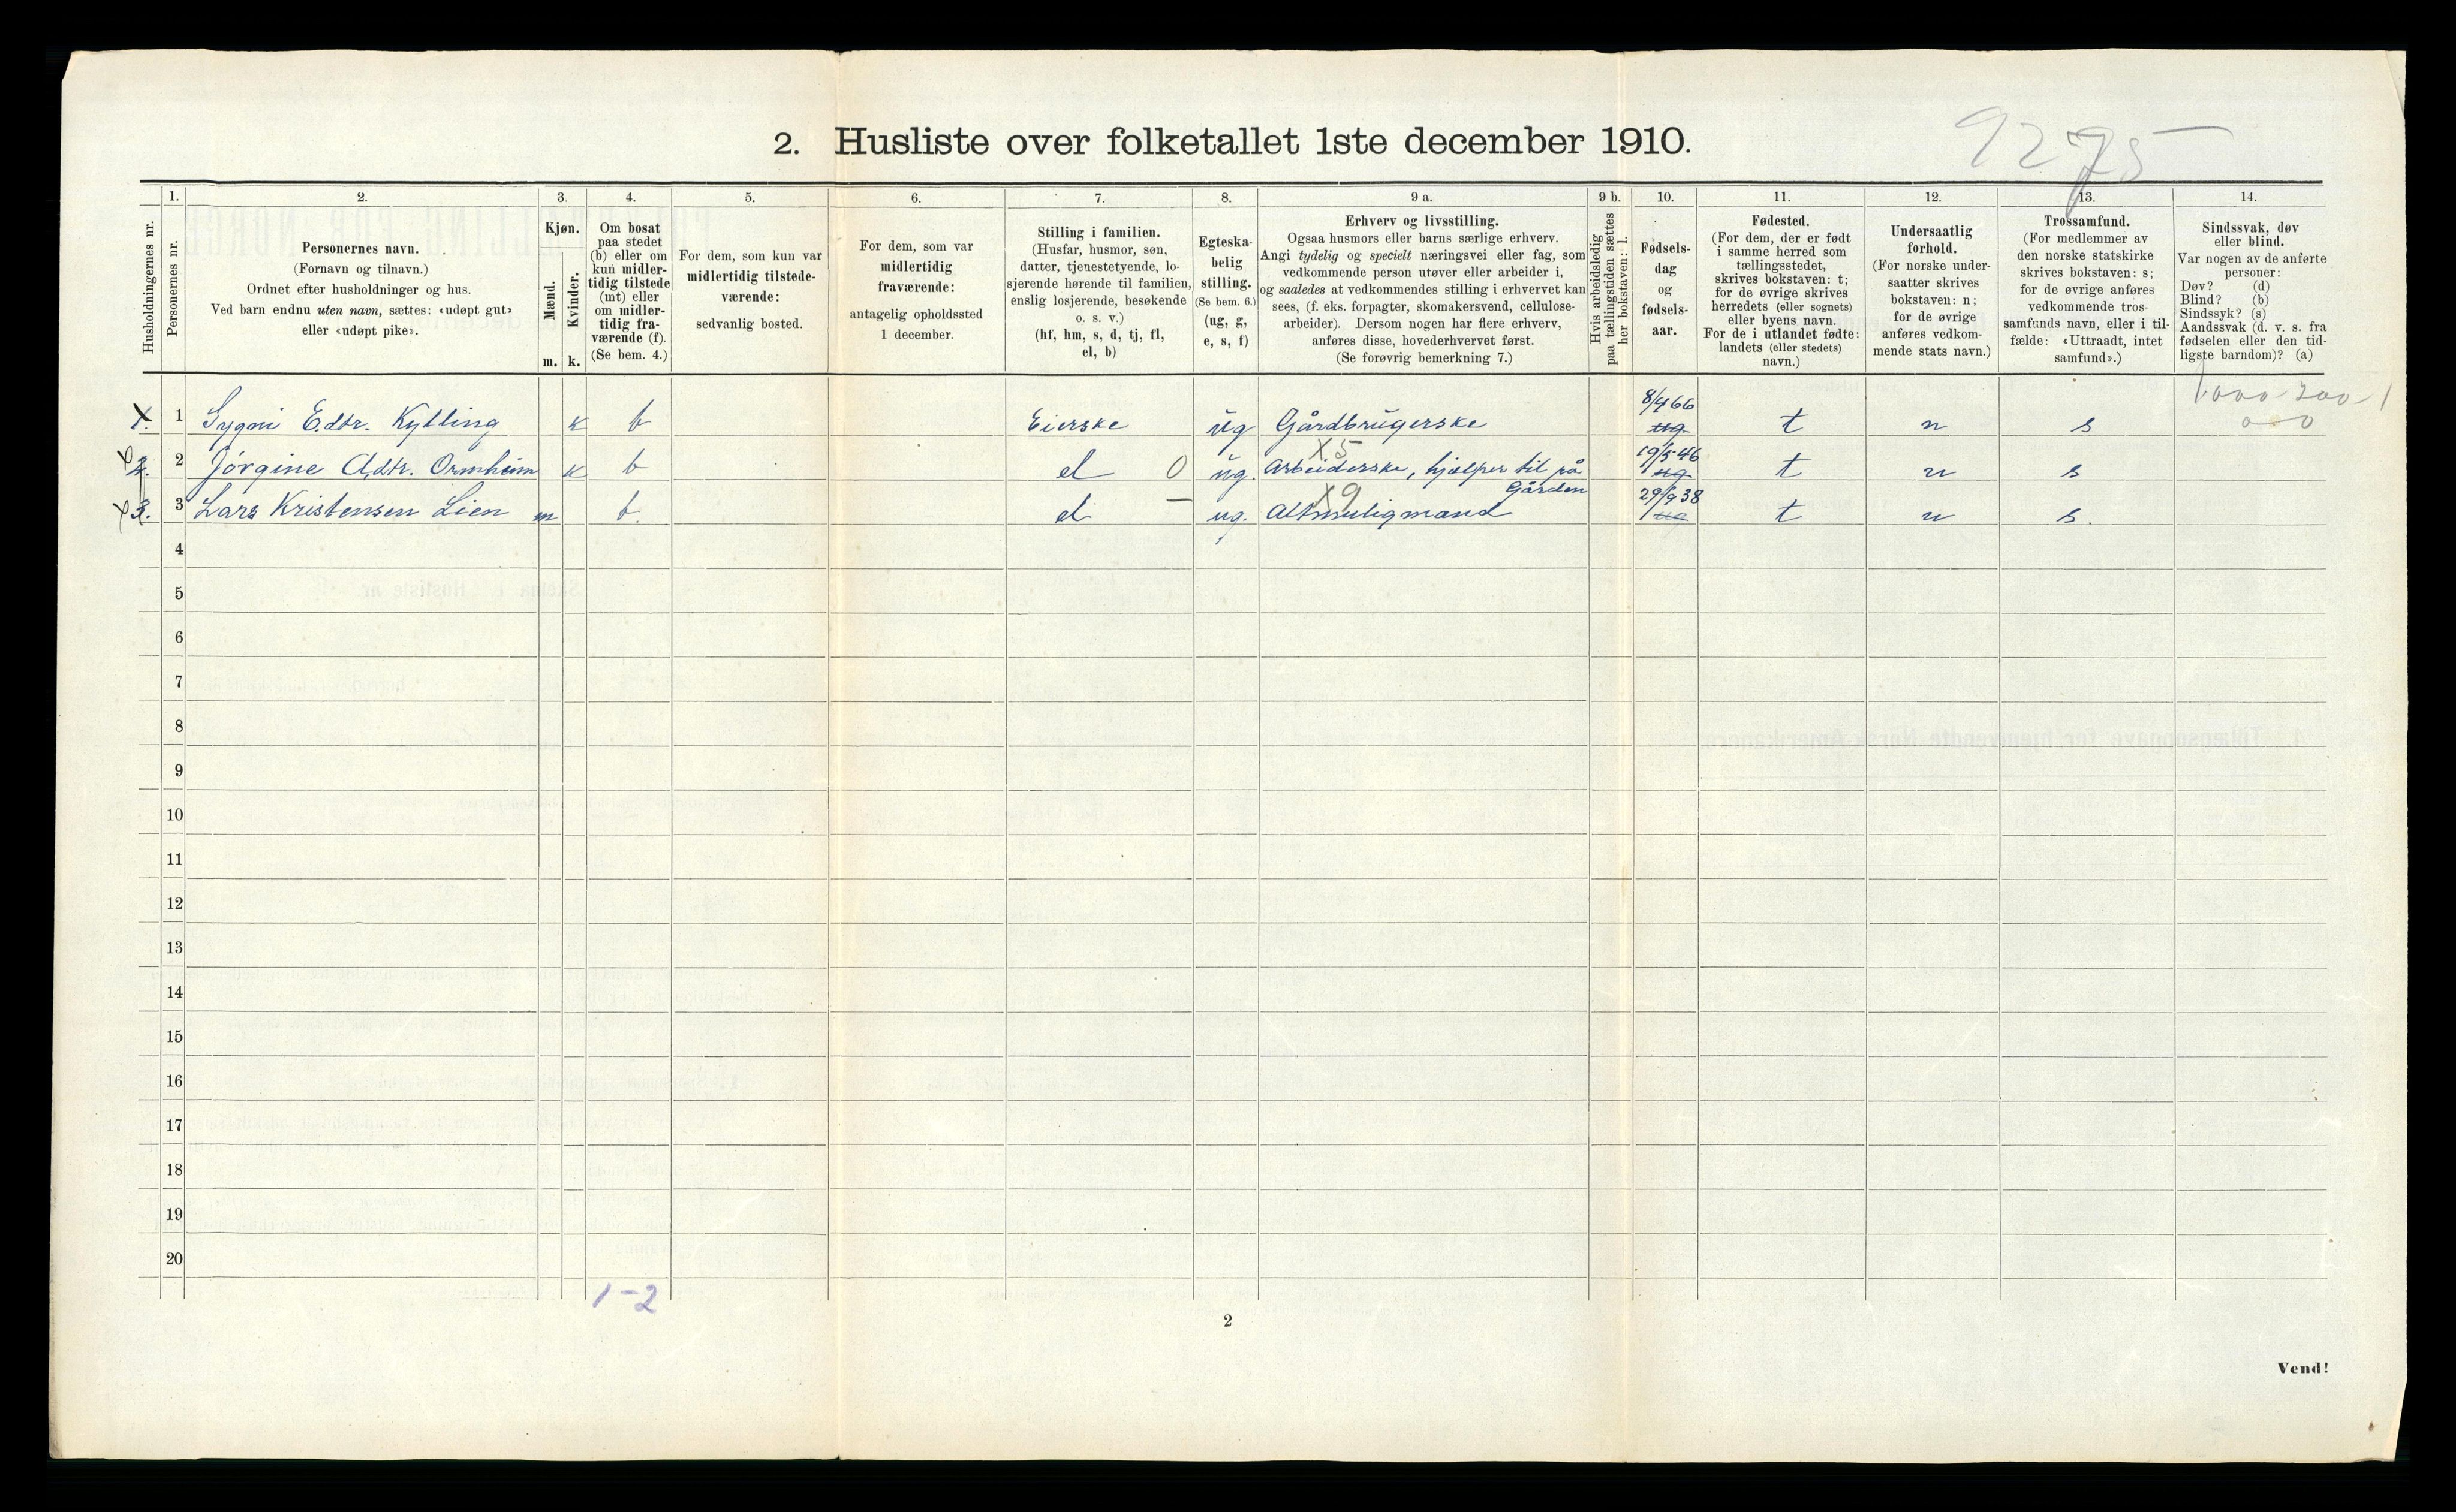 9275
2. Husliste over folketallet 1ste december 1910.
Husholdningernes nr.
1.
Personernes nr.
2.
Personernes navn.
(Fornavn og tilnavn.)
Ordnet efter husholdninger og hus.
Ved barn endnu uten navn, sættes: «udøpt gut»
eller «udøpt pike».
3.
Kjøn.
Mænd.
m.
Kvinder.
k.
4.
Om bosat
paa stedet
(b) eller om
kun midler-
tidig tilstede
(mt) eller
om midler-
tidig fra-
værende (f).
(Se bem. 4.)
5.
For dem, som kun var
midlertidig tilstede-
værende:
sedvanlig bosted.
6.
For dem, som var
midlertidig
fraværende:
antagelig opholdssted
1 december.
7.
Stilling i familien.
(Husfar, husmor, søn,
datter, tjenestetyende, lo-
sjerende hørende til familien,
enslig losjerende, besøkende
o. s. v.)
(hf, hm, s, d, tj, fl,
el, b)
8.
Egteska-
belig
stilling.
(Se bem. 6.)
(ug, g,
e, s, f)
9 a.
Erhverv og livsstilling.
Ogsaa husmors eller barns særlige erhverv.
Angi tydelig og specielt næringsvei eller fag, som
vedkommende person utøver eller arbeider i,
og saaledes at vedkommendes stilling i erhvervet kan
sees, (f. eks. forpagter, skomakersvend, cellulose-
arbeider). Dersom nogen har flere erhverv,
anføres disse, hovederhvervet først.
(Se forøvrig bemerkning 7.)
9 b.
Hvis arbeidsledig
paa tællingstiden sættes
her bokstaven: l.
10.
Fødsels-
dag
og
fødsels-
aar.
11.
Fødested.
(For dem, der er født
i samme herred som
tællingsstedet,
skrives bokstaven: t;
for de øvrige skrives
herredets (eller sognets)
eller byens navn.
For de i utlandet fødte:
landets (eller stedets)
navn.)
12.
Undersaatlig
forhold.
(For norske under-
saatter skrives
bokstaven: n;
for de øvrige
anføres vedkom-
mende stats navn.)
13.
Trossamfund.
(For medlemmer av
den norske statskirke
skrives bokstaven: s;
for de øvrige anføres
vedkommende tros-
samfunds navn, eller i til-
fælde: «Uttraadt, intet
samfund».)
14.
Sindssvak, døv
eller blind.
Var nogen av de anførte
personer:
Døv? (d)
Blind? (b)
Sindssyk? (s)
Aandssvak (d. v. s. fra
fødselen eller den tid-
ligste barndom)? (a)
1. 1 Sygni E.dtr. Kylling k b Eierske ug Gårdbrugerske 8/4 66 t n s
2. 2 Jørgine A.dtr. Ormheim k b el 0 ug. X5 Arbeiderske, hjælper til på Gården 19/5 46 t n s
3. 3 Lars Kristensen Lien m b el – ug. X9 Altmuligmand 29/9 38 t n s.
4
5
6
7
8
9
10
11
12
13
14
15
16
17
18
19
20
1-2
2
Vend!